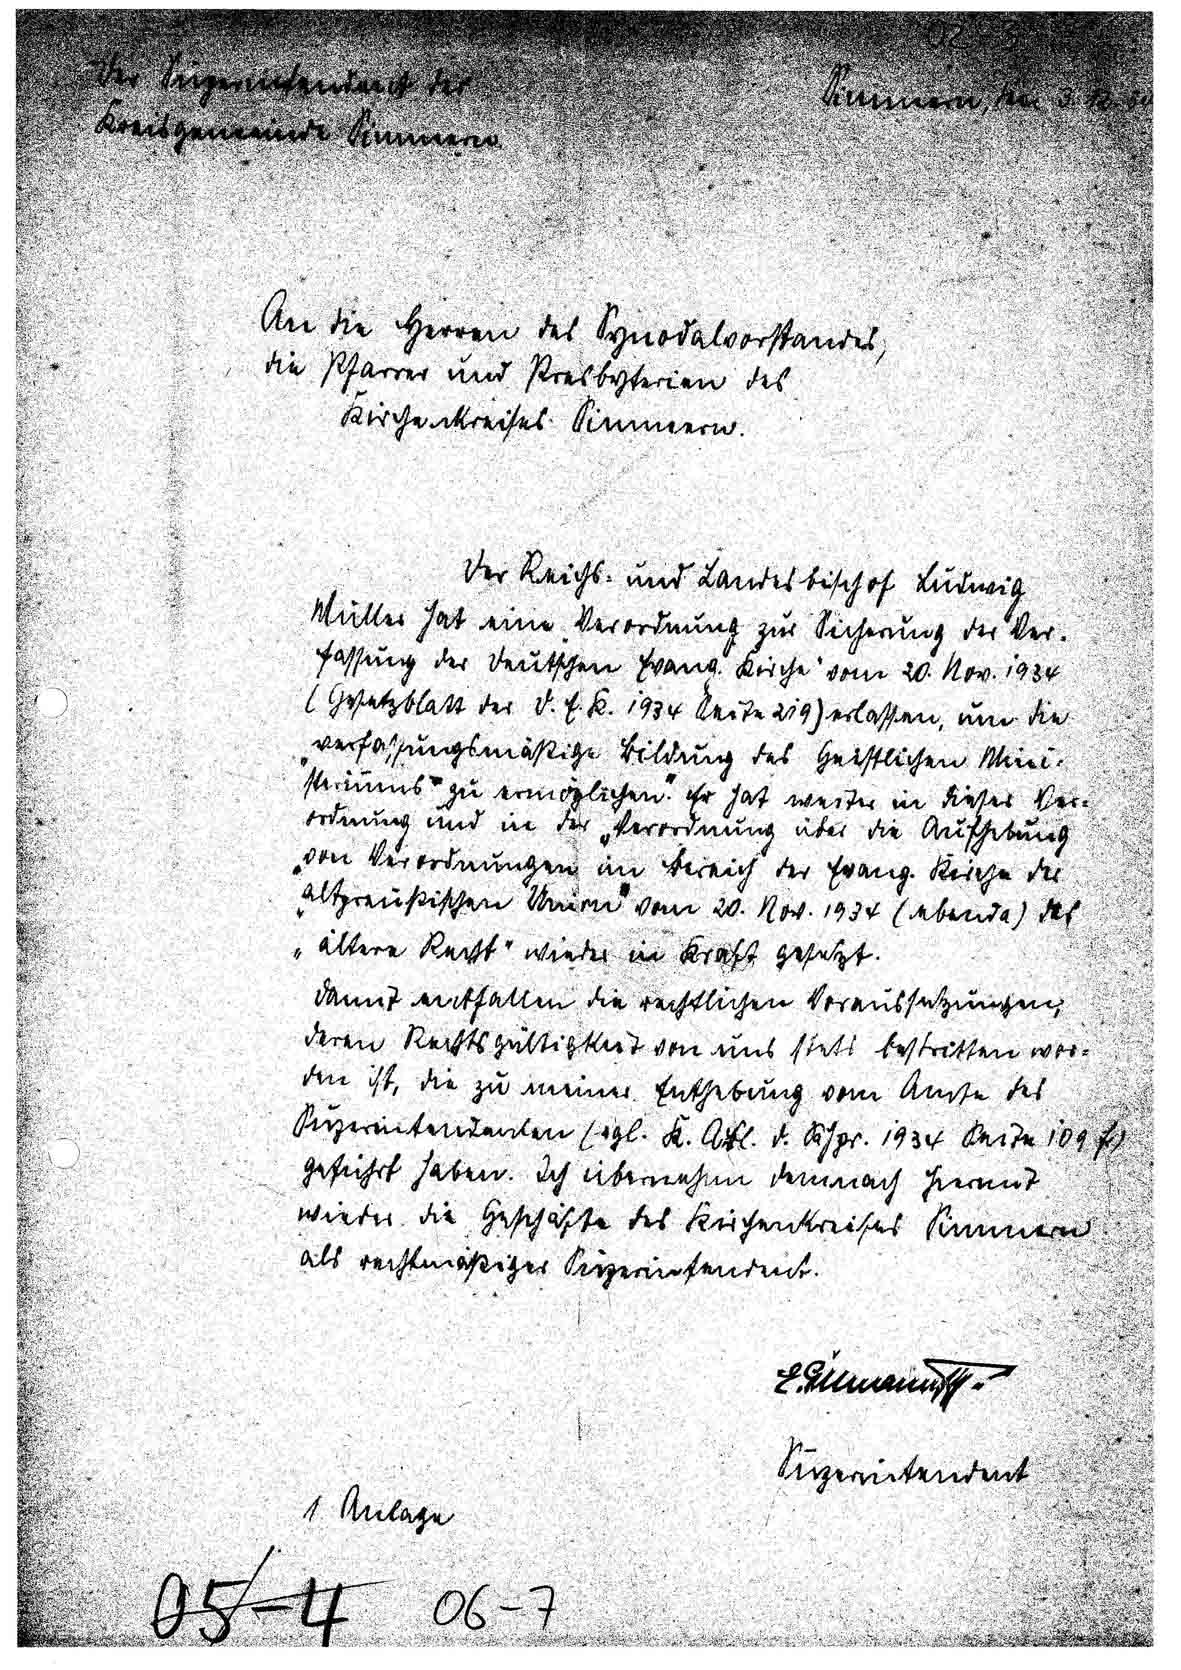 02
Der Superintendent der
Kreisgemeinde Simmern
Simmern, den 3. 12. 34
An die Herren des Synodalvorstandes,
die Pfarrer und Presbyterien des
Kirchenkreises Simmern.
Der Reichs- und Landesbischof Ludwig
Müller hat eine „Verordnung zur Sicherung der Ver-
fassung der Deutschen Evang. Kirche" vom 20. Nov. 1934
(Gesetzblatt der D. E. K. 1934 Seite 219) erlassen, um die
„verfassungsmäßige Bildung des Geistlichen Mini-
steriums" zu ermöglichen." Er hat weiter in dieser Ver-
ordnung und in der „Verordnung über die Aufhebung
„von Verordnungen im Bereich der Evang. Kirche der
„altpreußischen Union" vom 20. Nov. 1934 (ebenda) das
„ältere Recht" wieder in Kraft gesetzt.
Damit entfallen die rechtlichen Voraussetzungen,
deren Rechtsgültigkeit von uns stets bestritten wor-
den ist, die zu meiner Enthebung vom Amte des
Superintendenten (vgl. K. Abl. d. Rhpr. 1934 Seite 109 f.)
geführt haben. Ich übernehme demnach hiermit
wieder die Geschäfte des Kirchenkreises Simmern
als rechtmäßiger Superintendent.
E. Gillmann
Superintendent
1 Anlage
05-4 06-7